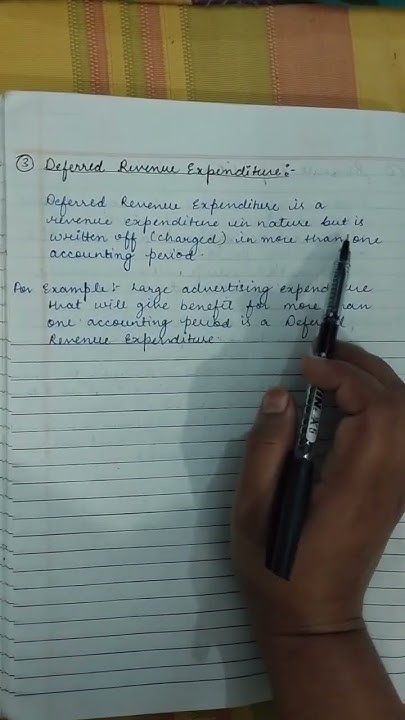 ③ Deferred Revenue Expenditure:-
Deferred Revenue Expenditure is a
revenue expenditure in nature but is
written off (charged) in more than one
accounting period.
For Example:- Large advertising
that will give benefit for more than
one accounting period is a Deferred
Revenue Expenditure.